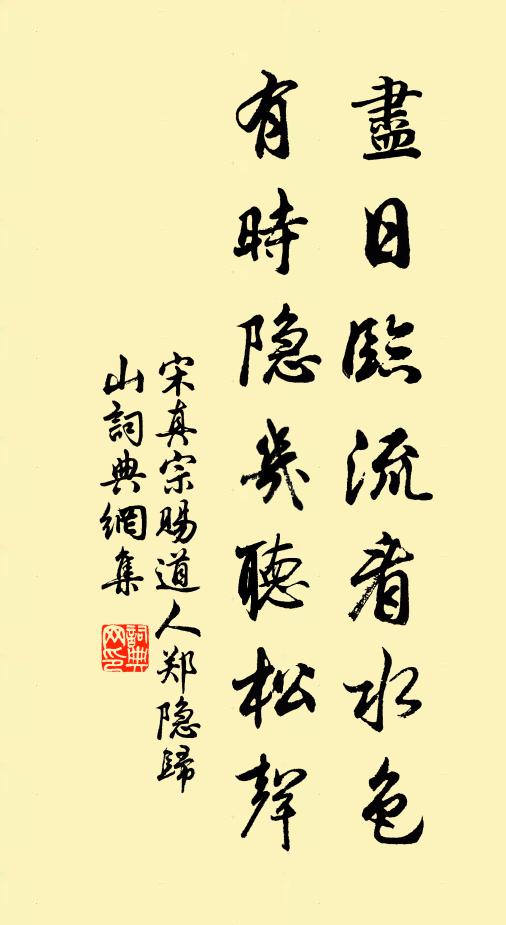 盡日臨流看水色
有時隐幾聽松聲
宋真宗賜道人郑隐歸
山詞典網集
詞典
网印